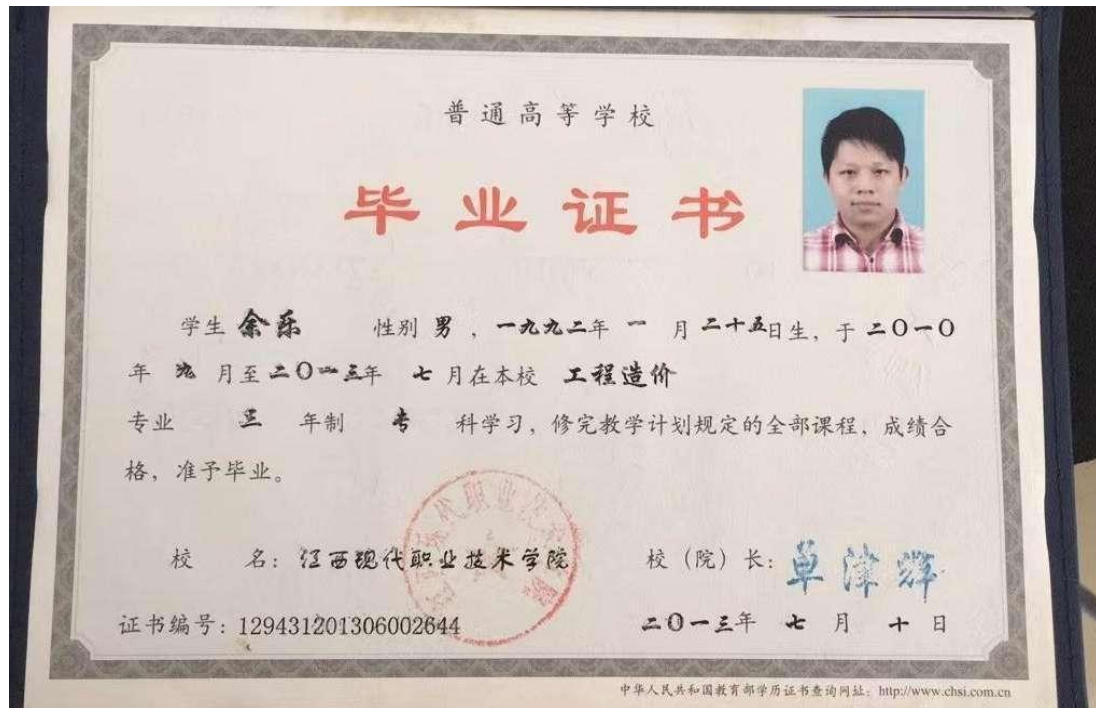 普通高等学校
毕业证书
学生 余乐 性别 男 ，一九九二年 一 月 二十五日生，于 二〇一〇
年 九 月至 二〇一三年 七 月在本校 工程造价
专业 三 年制 专 科学习，修完教学计划规定的全部课程，成绩合
格，准予毕业。
校 名：江西现代职业技术学院 校（院）长：单津辉
证书编号：129431201306002644 二〇一三年 七 月 十 日
中华人民共和国教育部学历证书查询网址：http://www.chsi.com.cn